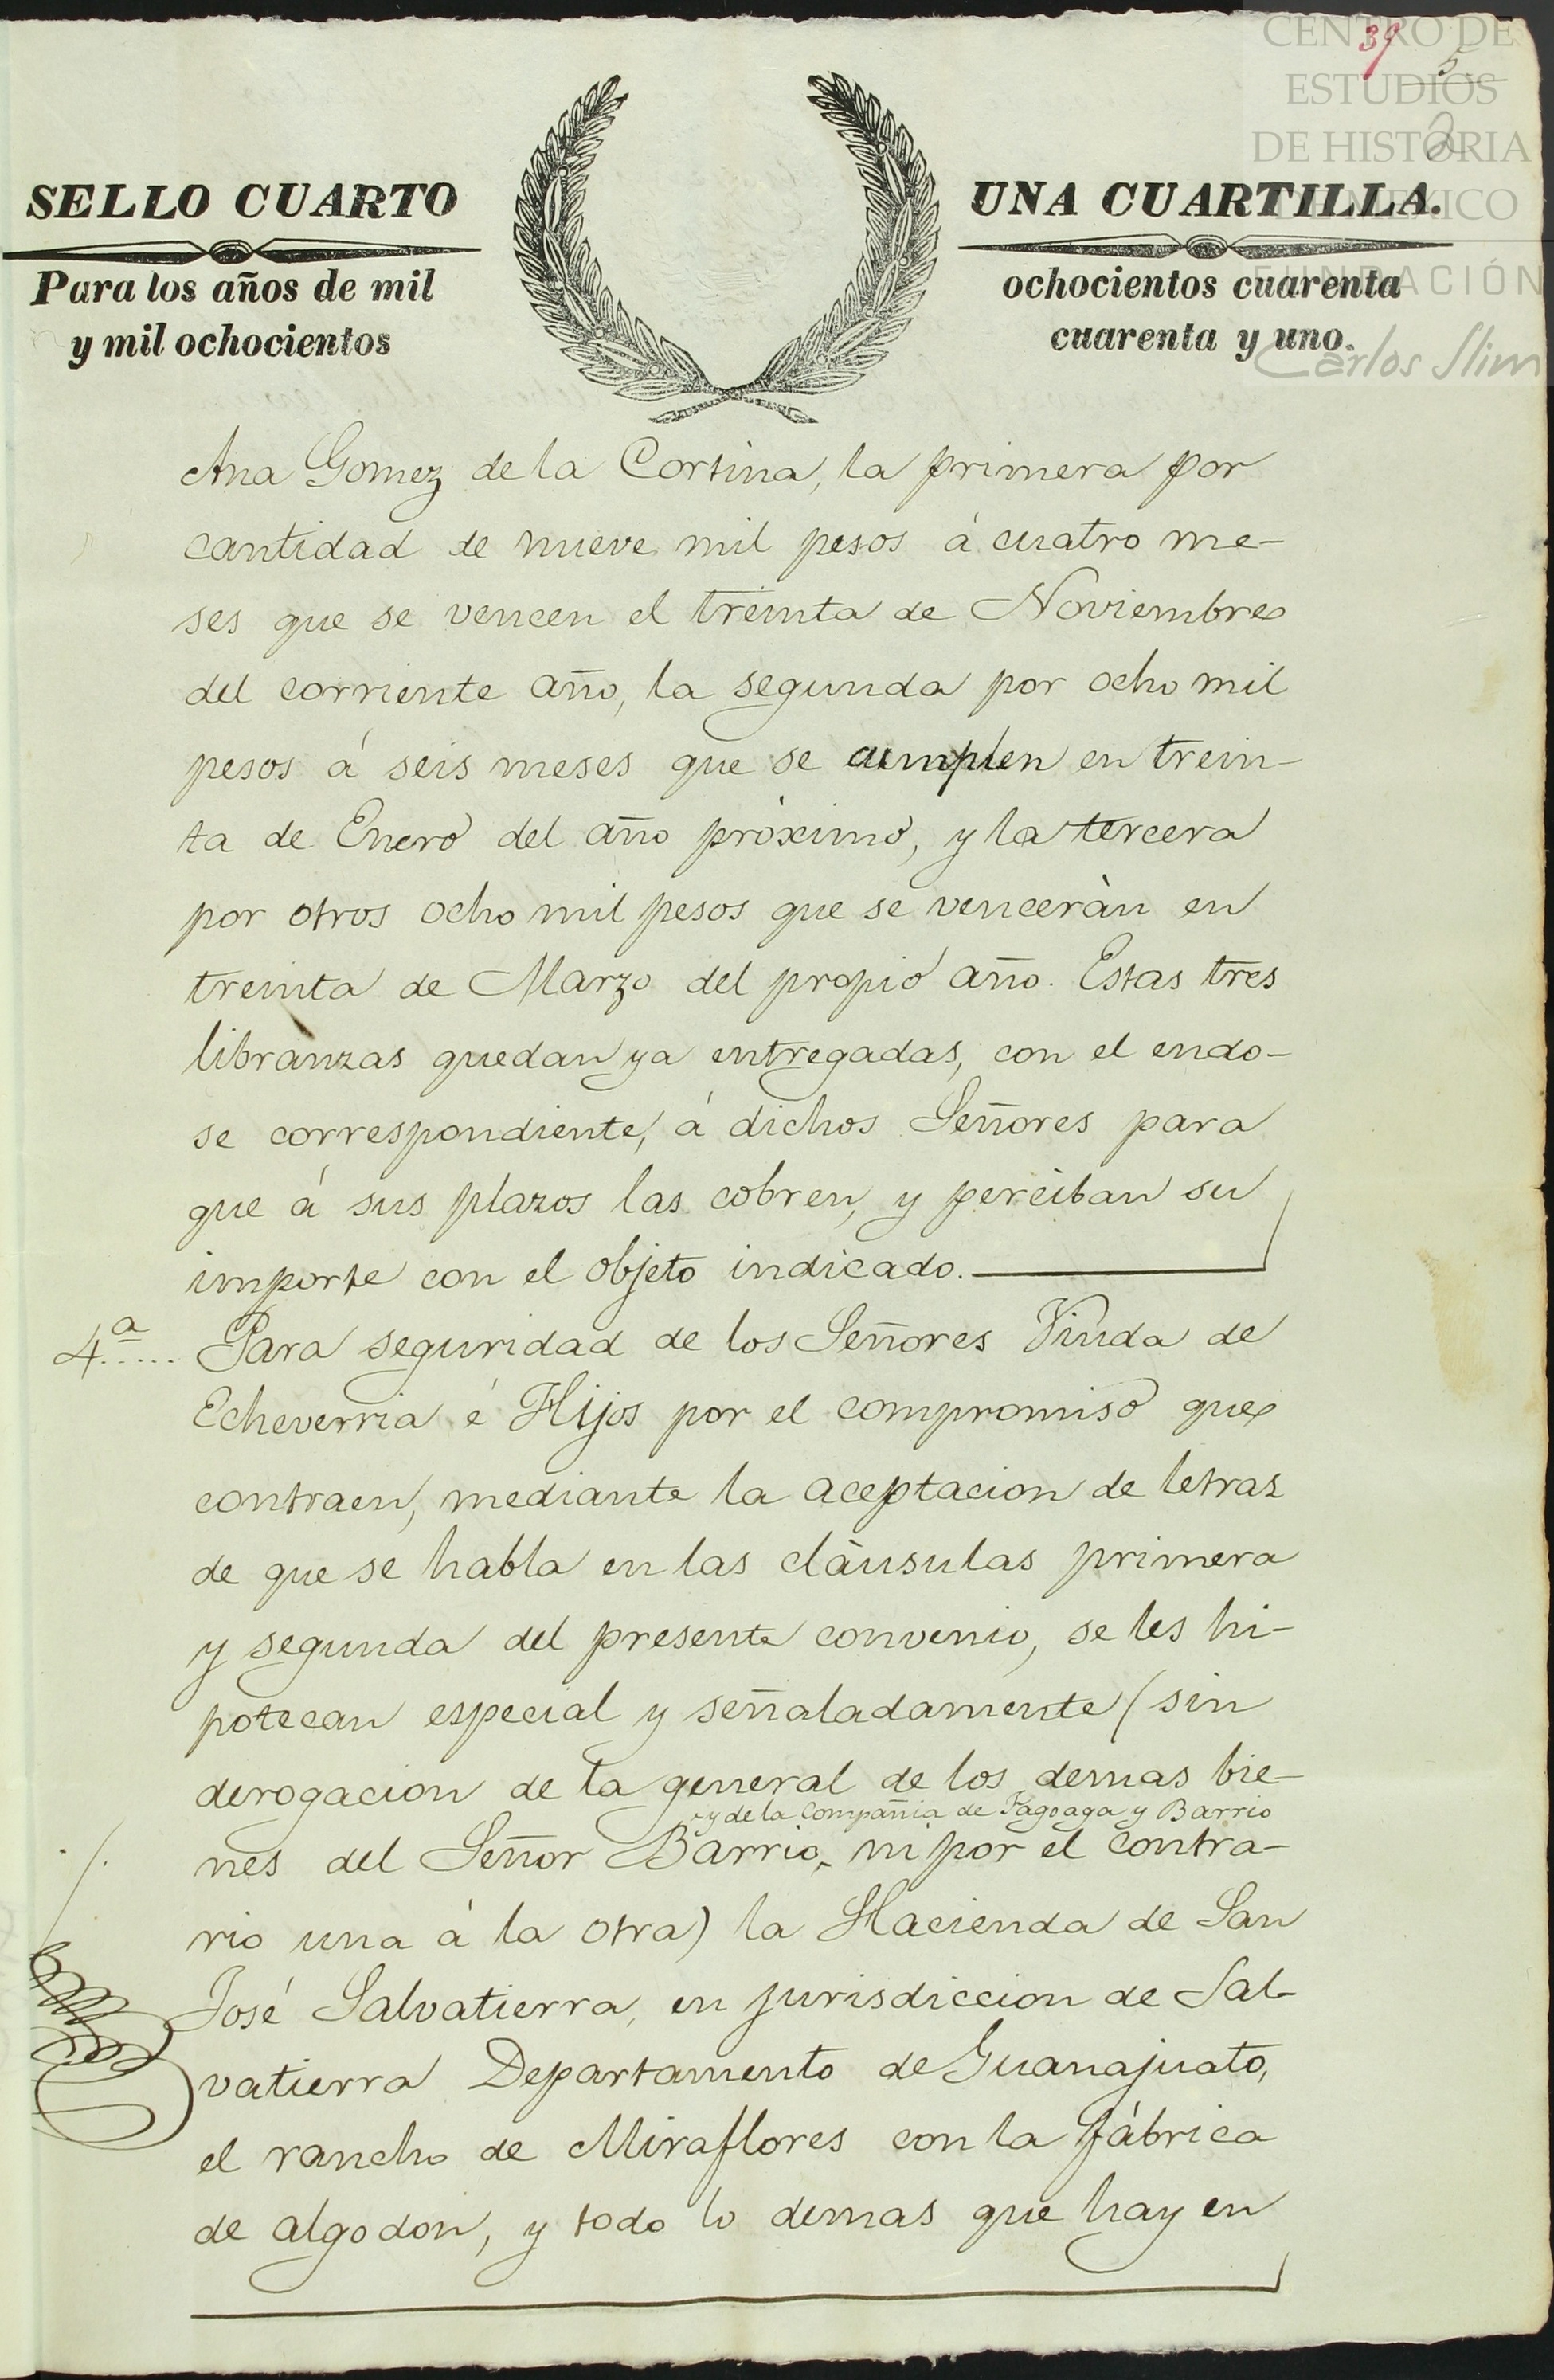 CENTRO DE
ESTUDIOS
DE HISTORIA
DE MÉXICO
FUNDACIÓN
Carlos Slim
39
5
2
SELLO CUARTO
UNA CUARTILLA.
Para los años de mil
ochocientos cuarenta
y mil ochocientos
cuarenta y uno.
Ana Gomez de la Cortina, la primera por
cantidad de nueve mil pesos á cuatro me-
ses que se vencen el treinta de Noviembre
del corriente año, la segunda por ocho mil
pesos á seis meses que se cumplen en trein-
ta de Enero del año próximo, y la tercera
por otros ocho mil pesos que se venceràn en
treinta de Marzo del propio año. Estas tres
libranzas quedan ya entregadas, con el endo-
se correspondiente, á dichos Señores para
que á sus plazos las cobren, y perciban su
importe con el objeto indicado.
4.ª..... Para seguridad de los Señores Viuda de
Echeverria é Hijos por el compromiso que
contraen, mediante la aceptacion de letras
de que se habla en las clàusulas primera
y segunda del presente convenio, se les hi-
potecan especial y señaladamente (sin
derogacion de la general de los demas bie-
y de la Compañia de Fagoaga y Barrio
nes del Señor Barrio, ni por el contra-
rio una à la otra) la Hacienda de San
José Salvatierra, en jurisdiccion de Sal-
vatierra Departamento de Guanajuato,
el rancho de Miraflores con la fàbrica
de algodon, y todo lo demas que hay en